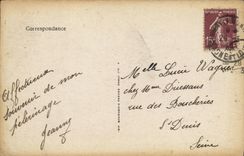 Correspondance
Affectueux
souvenir de mon
pèlerinage
Jeanny
Melle Lucie Wagner
chez Mme Driessans
rue des Boucheries
St Denis
Seine